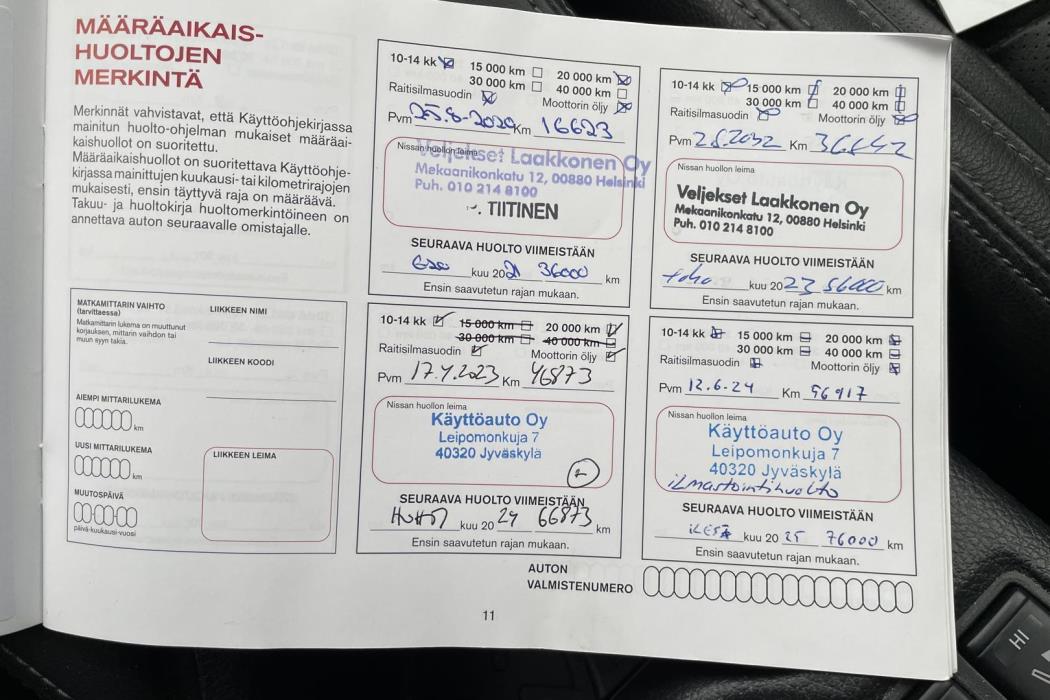 MÄÄRÄAIKAIS-
HUOLTOJEN
MERKINTÄ
Merkinnät vahvistavat, että Käyttöohjekirjassa
mainitun huolto-ohjelman mukaiset määräai-
kaishuollot on suoritettu.
Määräaikaishuollot on suoritettava Käyttöohje-
kirjassa mainittujen kuukausi- tai kilometrirajojen
mukaisesti, ensin täyttyvä raja on määräävä.
Takuu- ja huoltokirja huoltomerkintöineen on
annettava auton seuraavalle omistajalle.
MATKAMITTARIN VAIHTO
(tarvittaessa)
Matkamittarin lukema on muuttunut
korjauksen, mittarin vaihdon tai
muun syyn takia.
AIEMPI MITTARILUKEMA
km
UUSI MITTARILUKEMA
km
MUUTOSPÄIVÄ
päivä-kuukausi-vuosi
LIIKKEEN NIMI
LIIKKEEN KOODI
LIIKKEEN LEIMA
10-14 kk 15 000 km 20 000 km
30 000 km 40 000 km
Raitisilmasuodin Moottorin öljy
Pvm 25.8-2020 Km 16623
Nissan huollon leima
Veljekset Laakkonen Oy
Mekaanikonkatu 12, 00880 Helsinki
Puh. 010 214 8100
TIITINEN
SEURAAVA HUOLTO VIIMEISTÄÄN
kuu 2021 36000 km
Ensin saavutetun rajan mukaan.
10-14 kk 15 000 km 20 000 km
30 000 km 40 000 km
Raitisilmasuodin Moottorin öljy
Pvm Km
Nissan huollon leima
Veljekset Laakkonen Oy
Mekaanikonkatu 12, 00880 Helsinki
Puh. 010 214 8100
SEURAAVA HUOLTO VIIMEISTÄÄN
kuu 2023 56000 km
Ensin saavutetun rajan mukaan.
10-14 kk 15 000 km 20 000 km
30 000 km 40 000 km
Raitisilmasuodin Moottorin öljy
Pvm 17.4.2023 Km 46873
Nissan huollon leima
Käyttöauto Oy
Leipomonkuja 7
40320 Jyväskylä
SEURAAVA HUOLTO VIIMEISTÄÄN
HUHTI kuu 2024 66873 km
Ensin saavutetun rajan mukaan.
10-14 kk 15 000 km 20 000 km
30 000 km 40 000 km
Raitisilmasuodin Moottorin öljy
Pvm 12.6-24 Km 56917
Nissan huollon leima
Käyttöauto Oy
Leipomonkuja 7
40320 Jyväskylä
ilmastointihuolto
SEURAAVA HUOLTO VIIMEISTÄÄN
KESÄ kuu 2025 76000 km
Ensin saavutetun rajan mukaan.
AUTON
VALMISTENUMERO
11
HI